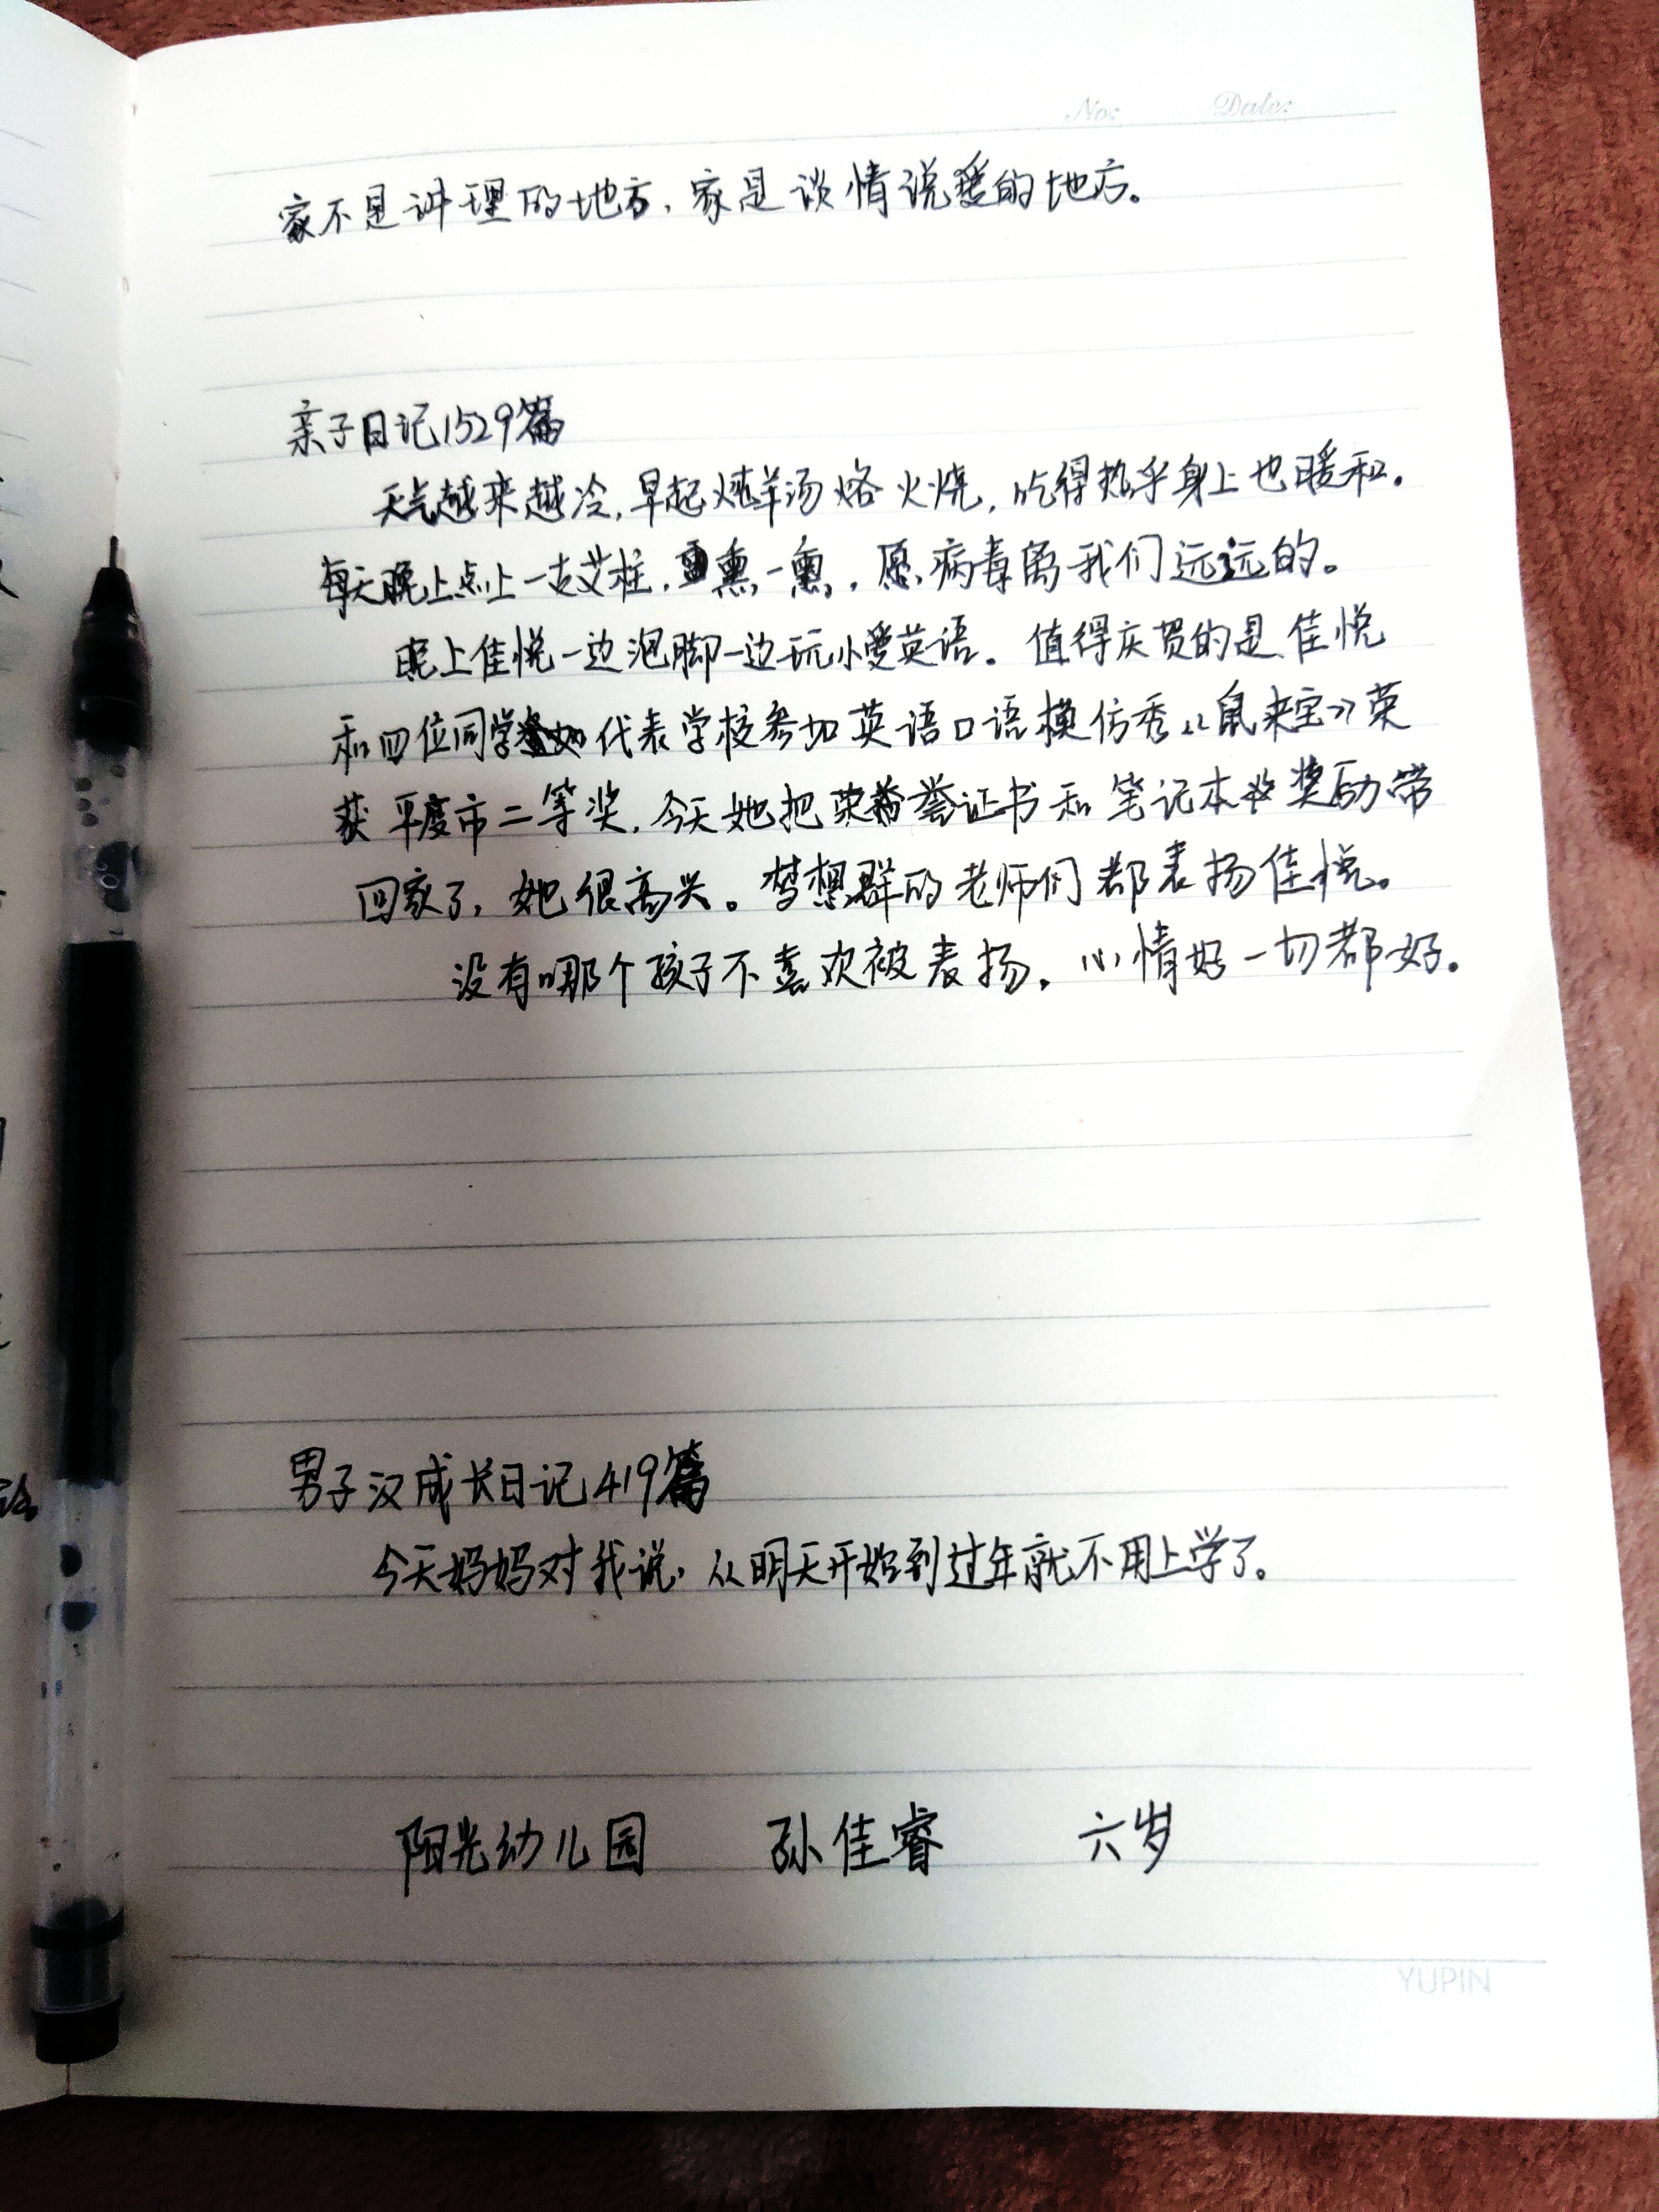 No: Date:
家不是讲理的地方，家是谈情说爱的地方。
亲子日记1529篇
天气越来越冷，早起燒羊汤烙火烧，吃得热乎身上也暖和。
每天晚上点上一支艾柱，熏一熏，愿病毒离我们远远的。
晚上佳悦一边泡脚一边玩小爱英语。值得庆贺的是佳悦
和四位同学代表学校参加英语口语模仿秀《鼠来宝》荣
获平度市二等奖，今天她把荣誉证书和笔记本奖励带
回家了，她很高兴。梦想群的老师们都表扬佳悦。
没有哪个孩子不喜欢被表扬。心情好一切都好。
男子汉成长日记419篇
今天妈妈对我说，从明天开始到过年就不用上学了。
阳光幼儿园 孙佳睿 六岁
YUPIN